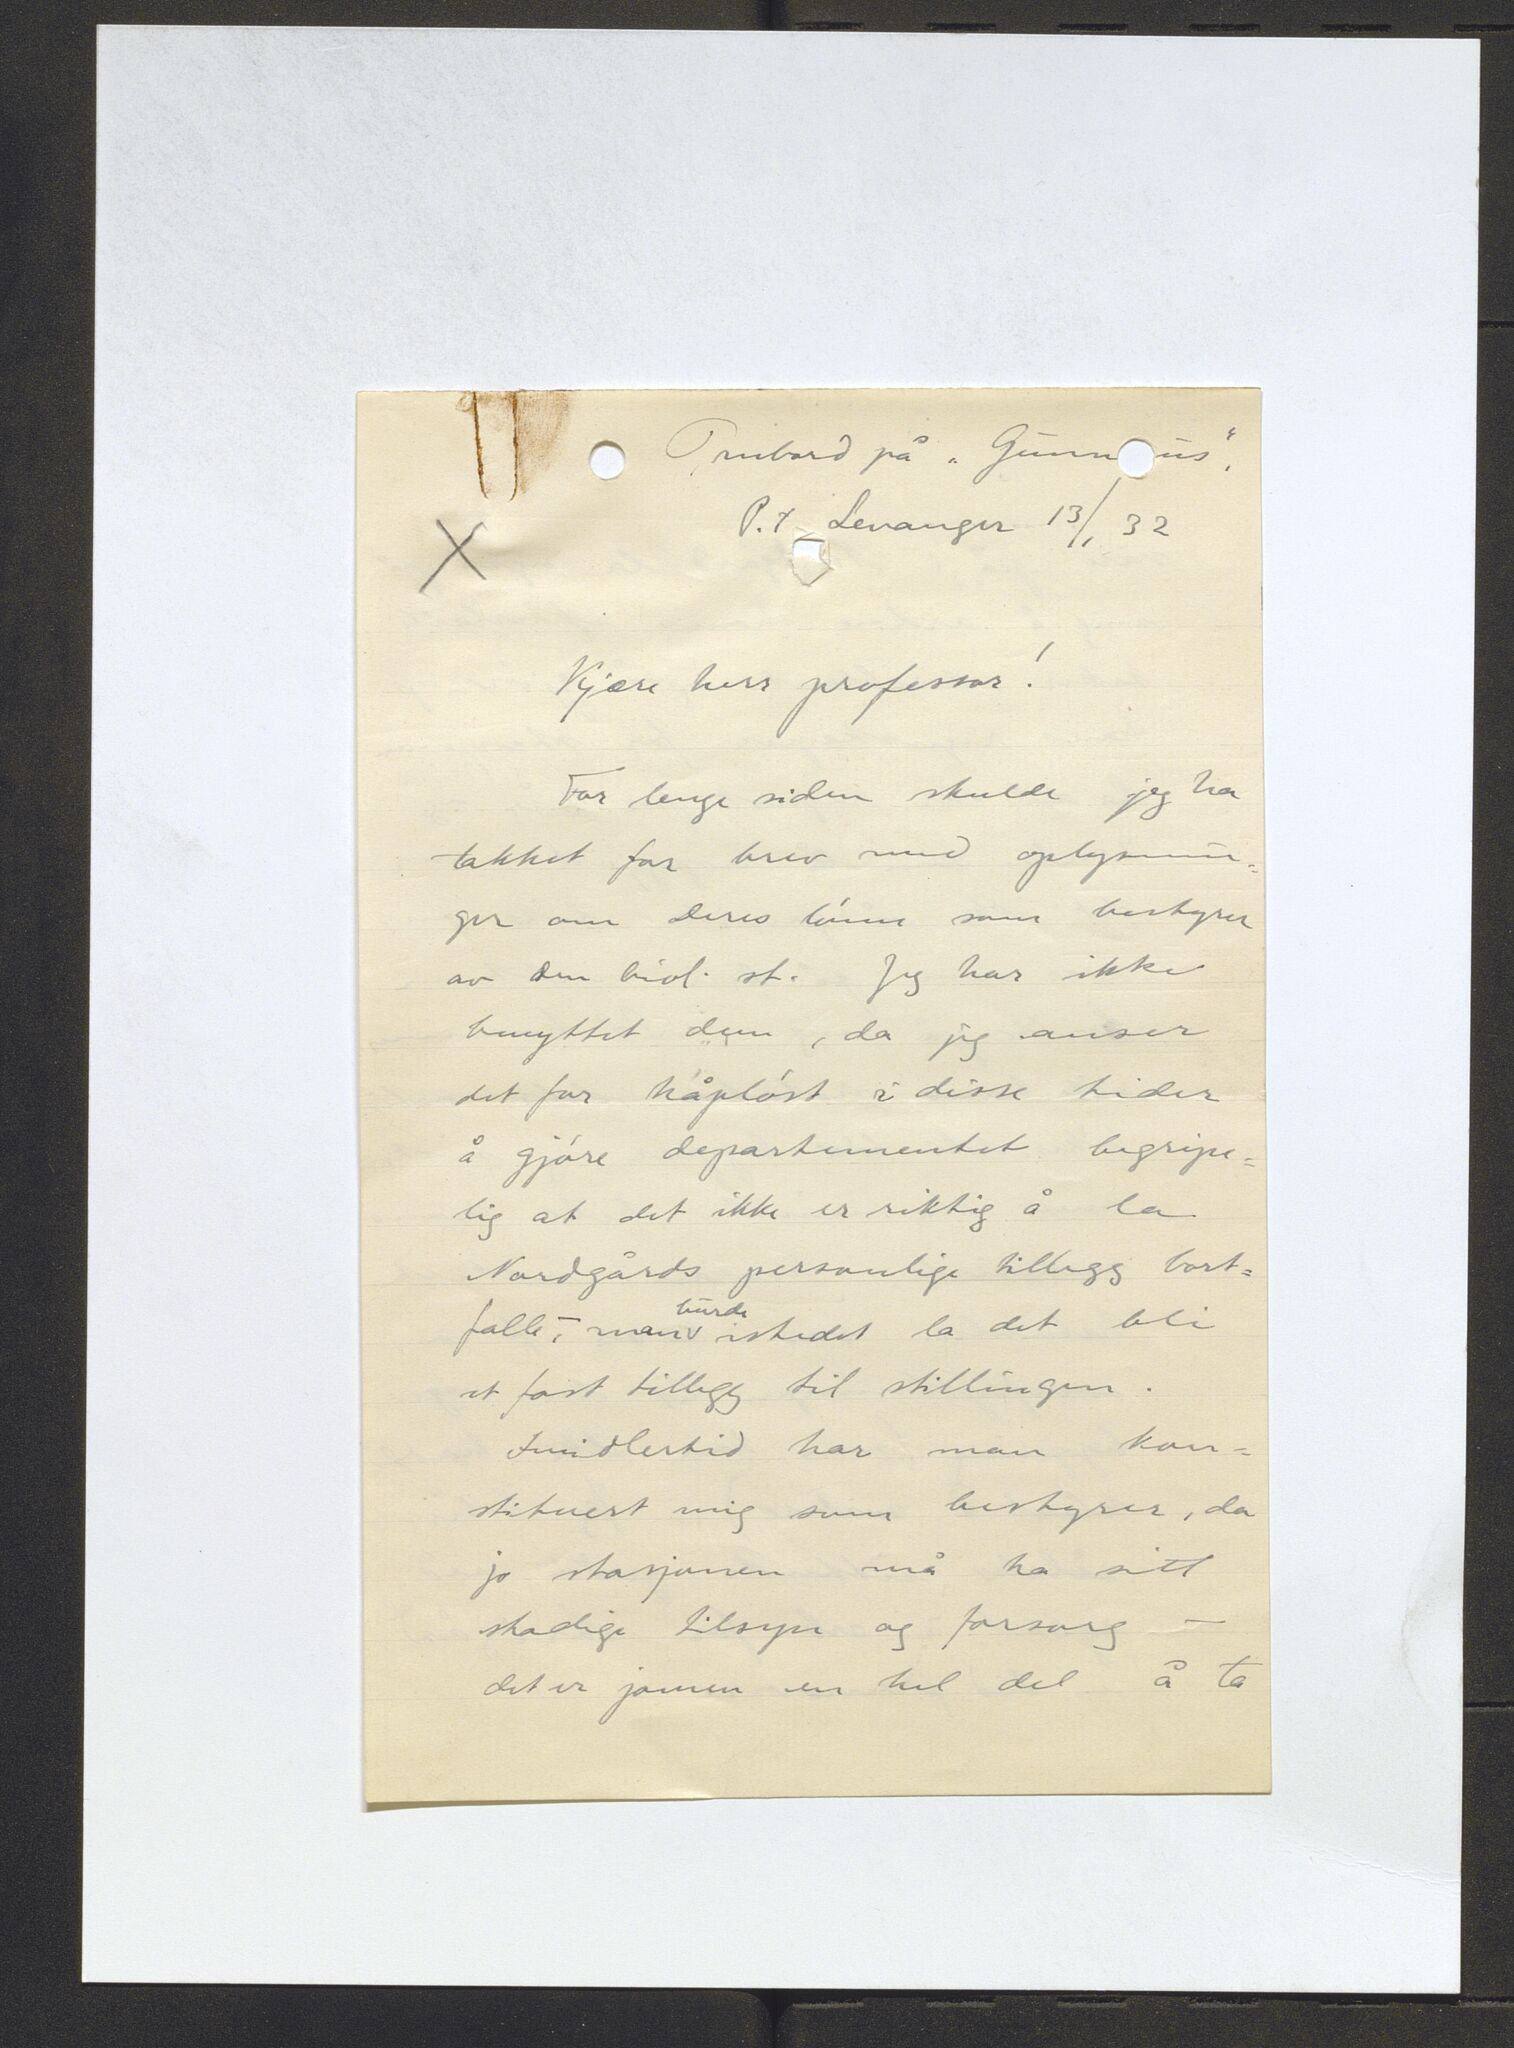 Ombord på „Gunnerus“.
P.t. Levanger 13/1 32
X
Kjære herr professor!
For lenge siden skulde jeg ha
takket for brev med oplysnin=
ger om Deres lønn som bestyrer
av den biol. st. Jeg har ikke
benyttet dem, da jeg anser
det for håpløst i disse tider
å gjøre departementet begripe=
lig at det ikke er riktig å la
Nordgårds personlige tillegg bort=
falle, – man burde istedet la det bli
et fast tillegg til stillingen.
Imidlertid har man kon=
stituert mig som bestyrer, da
jo stasjonen må ha sitt
stadige tilsyn og forsorg –
det er jamen en hel del å ta